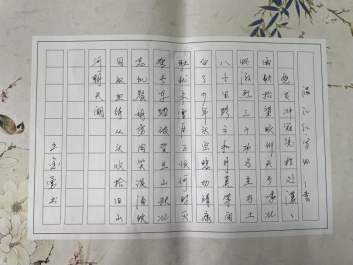 满江红
怒发冲冠凭栏处潇潇
雨歇抬望眼仰天长啸壮
怀激烈三十功名尘与土
八千里路云和月莫等闲
白了少年头空悲切靖康
耻犹未雪臣子恨何时灭
驾长车踏破贺兰山缺壮
志饥餐胡虏肉笑谈渴饮
匈奴血待从头收拾旧山
河朝天阙